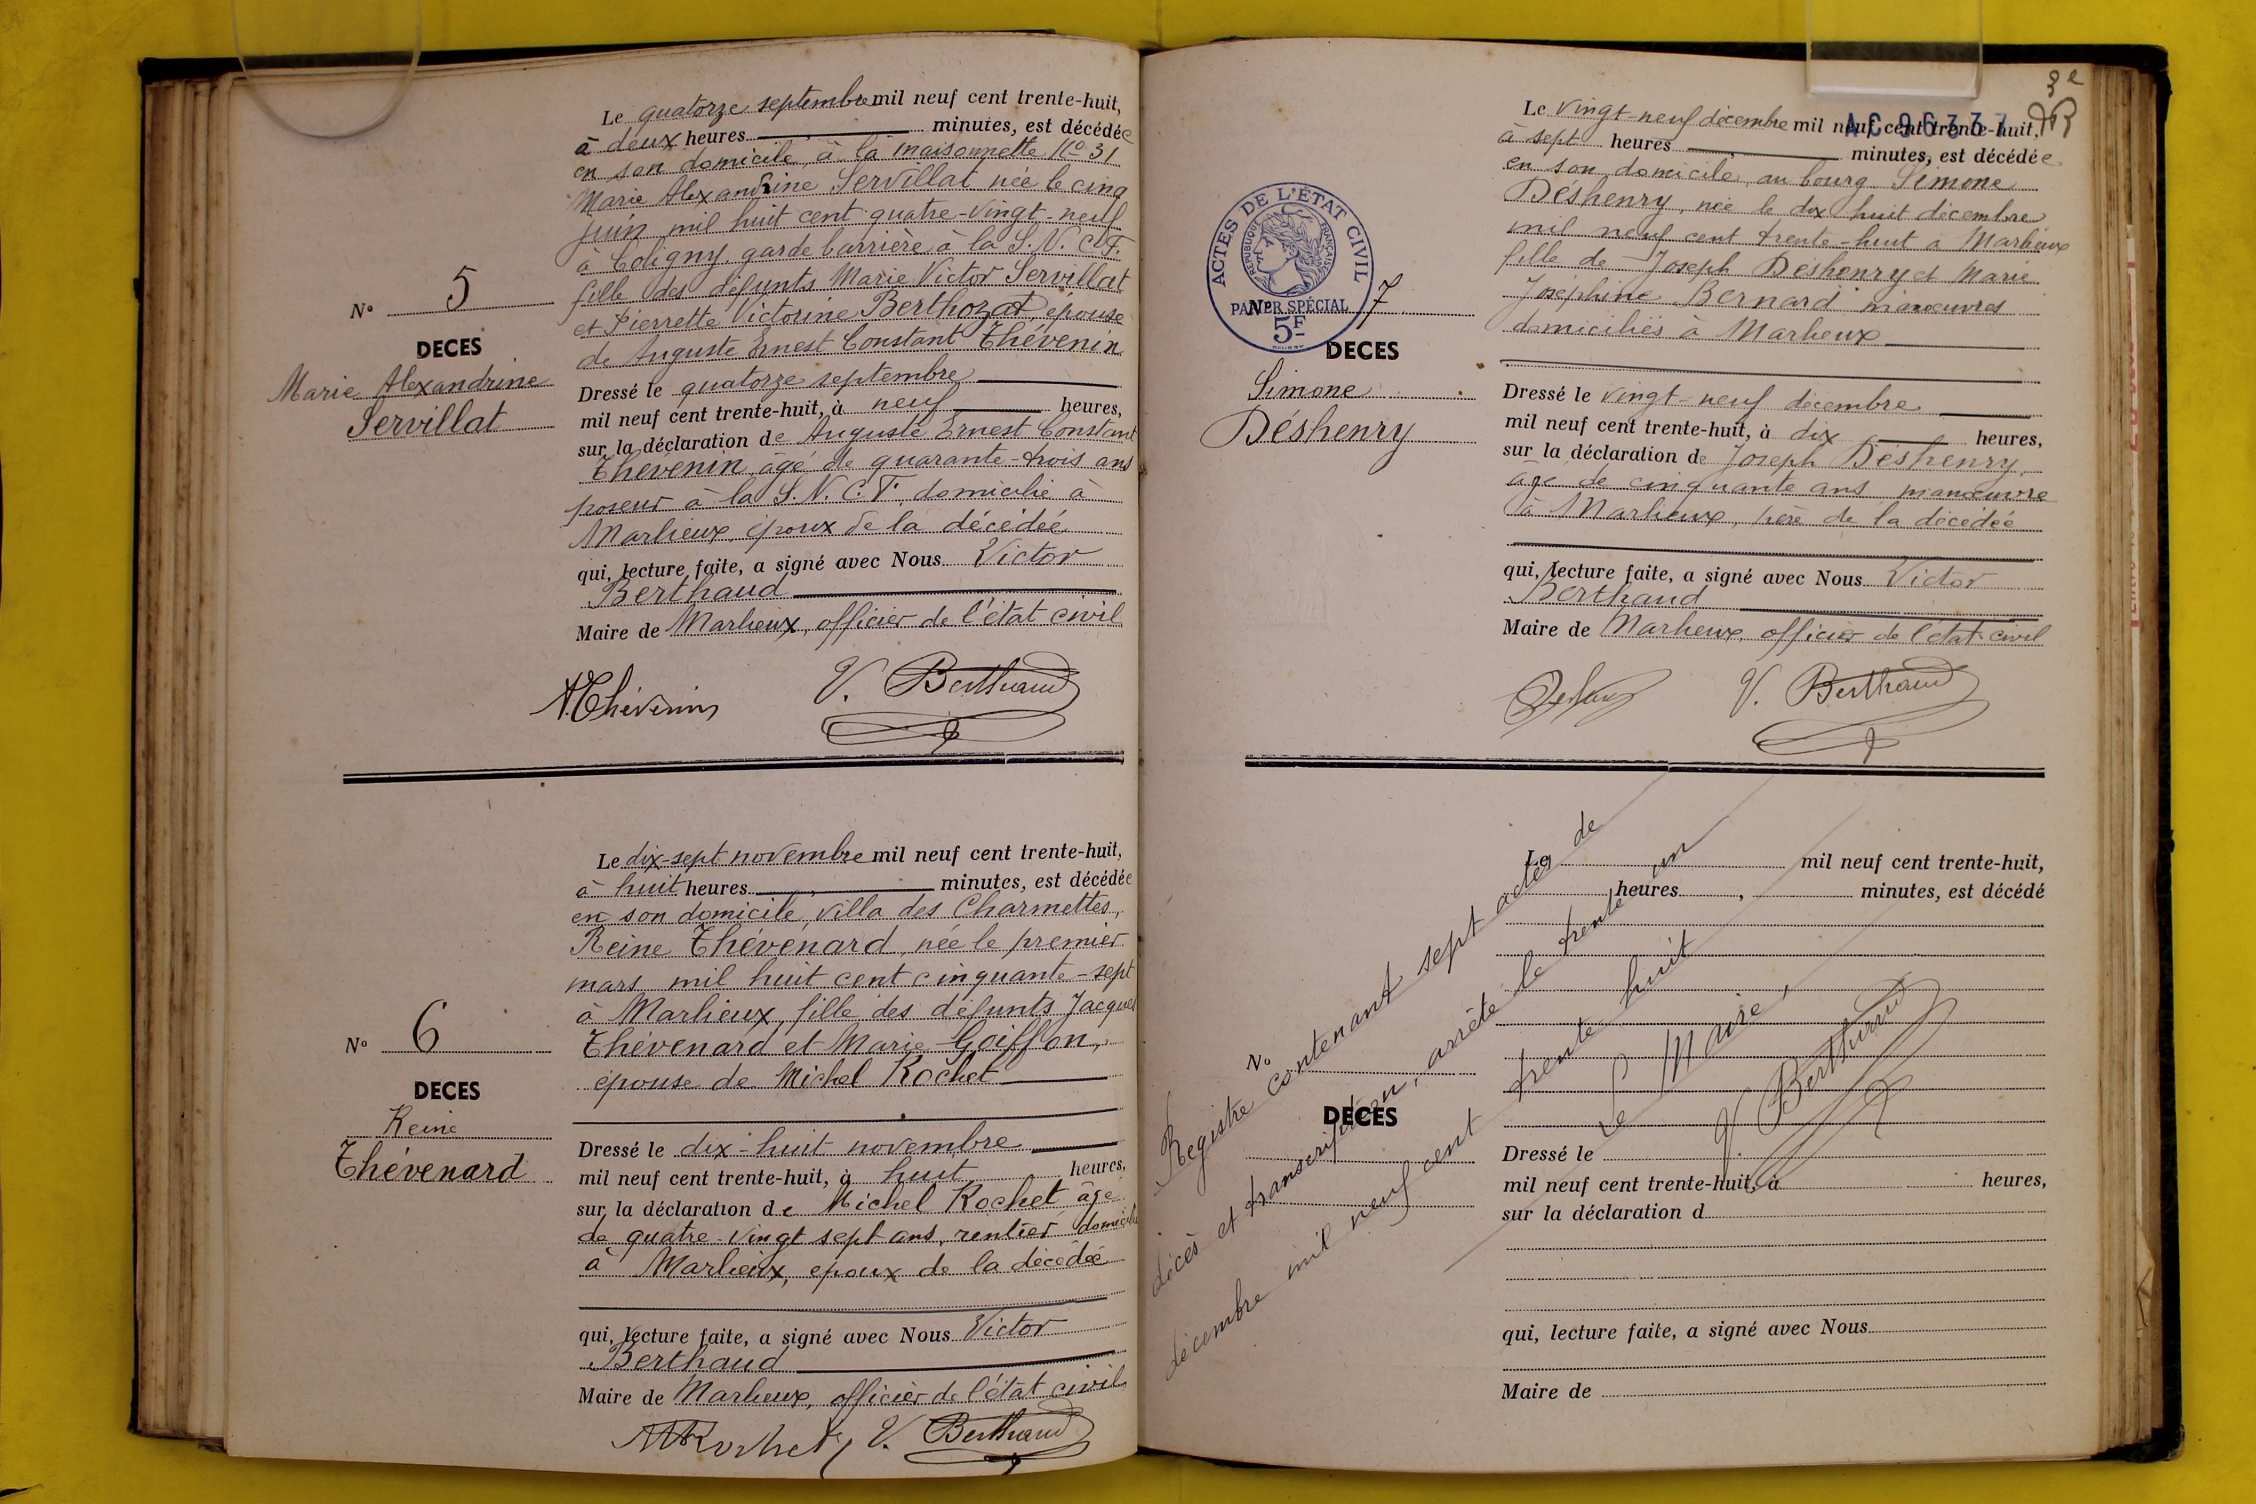 Le quatorze septembre mil neuf cent trente-huit,
à deux heures , minutes, est décédée
en son domicile, à la maisonnette No 31
Marie Alexandrine Servillat née le cinq
juin mil huit cent quatre-vingt-neuf
à Coligny garde barrière à la S.N.C.F.
fille des défunts Marie Victor Servillat
et Pierrette Victorine Berthozat, épouse
de Auguste Ernest Constant Thévenin
No 5
DECES
Marie Alexandrine
Servillat
Dressé le quatorze septembre
mil neuf cent trente-huit, à neuf heures,
sur la déclaration de Auguste Ernest Constant
Thévenin âgé de quarante-trois ans
poseur à la S.N.C.F. domicilié à
Marlieux, époux de la décédée
qui, lecture faite, a signé avec Nous Victor
Berthaud
Maire de Marlieux, officier de l'état civil
A. Thévenin V. Berthaud
Le dix-sept novembre mil neuf cent trente-huit,
à huit heures , minutes, est décédée
en son domicile, villa des Charmettes,
Reine Thévenard, née le premier
mars mil huit cent cinquante-sept
à Marlieux, fille des défunts Jacques
Thévenard et Marie Goiffon,
épouse de Michel Rochet
No 6
DECES
Reine
Thévenard
Dressé le dix-huit novembre
mil neuf cent trente-huit, à huit heures,
sur la déclaration de Michel Rochet âgé
de quatre-vingt sept ans, rentier domicilié
à Marlieux, époux de la décédée
qui, lecture faite, a signé avec Nous Victor
Berthaud
Maire de Marlieux, officier de l'état civil
M Rochet V. Berthaud
AC 96337
Le vingt-neuf décembre mil neuf cent trente-huit,
à sept heures , minutes, est décédée
en son domicile, au bourg Simone
Déshenry, née le dix huit décembre
mil neuf cent trente-huit à Marlieux
fille de Joseph Déshenry et Marie
Joséphine Bernard manœuvres
domiciliés à Marlieux
ACTES DE L'ÉTAT CIVIL
RÉPUBLIQUE FRANÇAISE
PAPIER SPÉCIAL
5F
No 7
DECES
Simone
Déshenry
Dressé le vingt-neuf décembre
mil neuf cent trente-huit, à dix heures,
sur la déclaration de Joseph Déshenry,
âgé de cinquante ans manœuvre
à Marlieux, père de la décédée
qui, lecture faite, a signé avec Nous Victor
Berthaud
Maire de Marlieux, officier de l'état civil
V. Berthaud
Le mil neuf cent trente-huit,
heures , minutes, est décédé
No
DECES
Dressé le
mil neuf cent trente-huit, à heures,
sur la déclaration d
qui, lecture faite, a signé avec Nous
Maire de
Registre contenant sept actes de
décès et transcription, arrêté le trente un
décembre mil neuf cent trente huit
Le Maire
V. Berthaud